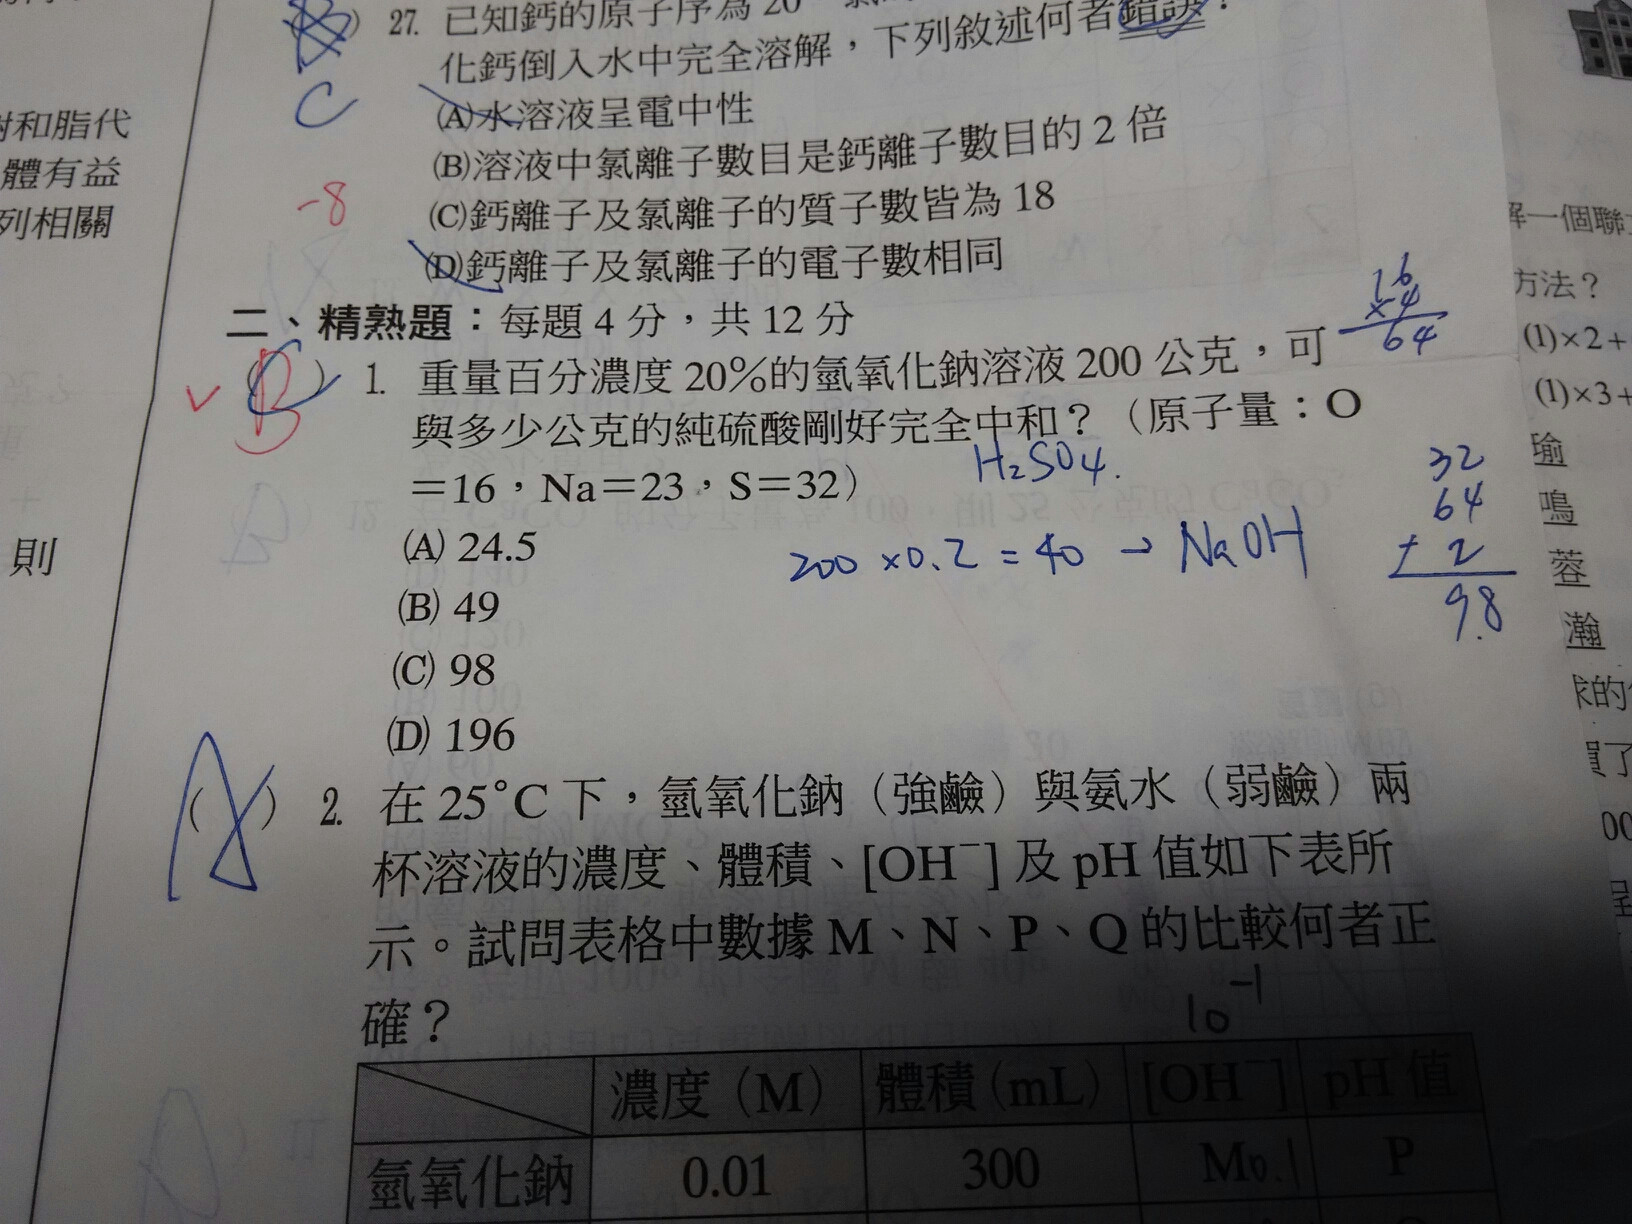 27. 已知鈣的原子序為 20
化鈣倒入水中完全溶解，下列敘述何者錯誤？
C
(A)水溶液呈電中性
(B)溶液中氯離子數目是鈣離子數目的 2 倍
-8
(C)鈣離子及氯離子的質子數皆為 18
(D)鈣離子及氯離子的電子數相同
二、精熟題：每題 4 分，共 12 分
16
×4
64
B
( ) 1. 重量百分濃度 20%的氫氧化鈉溶液 200 公克，可
與多少公克的純硫酸剛好完全中和？（原子量：O
＝16，Na＝23，S＝32）
H₂SO4.
(A) 24.5
200 ×0.2 = 40 → NaOH
32
64
+ 2
98
(B) 49
(C) 98
(D) 196
( ) 2. 在 25°C 下，氫氧化鈉（強鹼）與氨水（弱鹼）兩
杯溶液的濃度、體積、[OH⁻] 及 pH 值如下表所
示。試問表格中數據 M、N、P、Q 的比較何者正
確？
10⁻¹
濃度（M） 體積（mL） [OH⁻] pH 值
氫氧化鈉 0.01 300 M 0.1 P
樹和脂代
體有益
列相關
則
解一個聯
方法？
(1)×2＋
(1)×3＋
瑜
鳴
蓉
瀚
買了